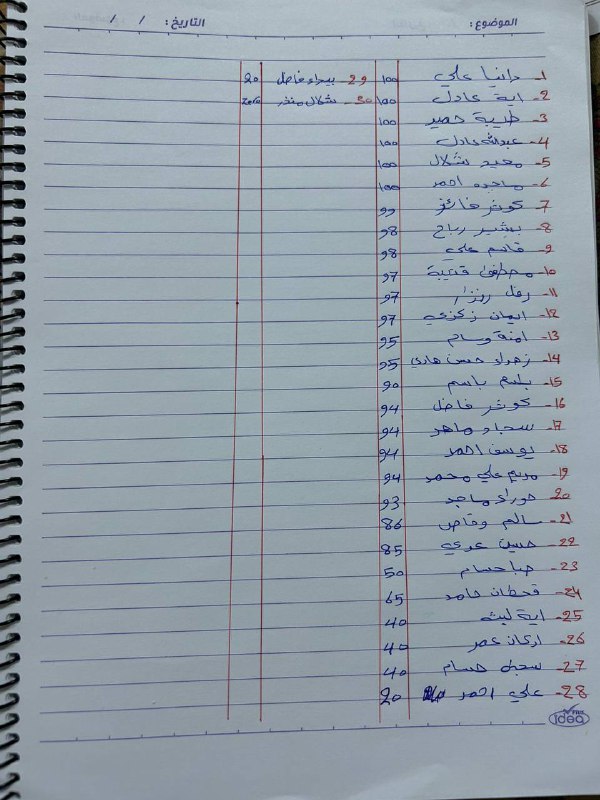 الموضوع: التاريخ: / /
1- دانيا علي 100
2- اية عادل 100
3- طيبة خضير 100
4- عبدالله عادل 100
5- معيد شلال 100
6- ماجده احمد 100
7- كوثر فائق 99
8- بشير رباح 98
9- قاسم علي 98
10- مصطفى قتيبة 97
11- رفل 97
12- ايمان زكزي 97
13- امنة وسام 95
14- زهراء حسن هادي 95
15- باسم 90
16- كوثر فاضل 94
17- سجاد ماهر 94
18- يوسف احمد 94
19- مريم علي محمد 94
20- حوراء ماجد 93
21- سالم وقاص 86
22- حسين عدي 85
23- صبا حسام 50
24- قحطان حامد 65
25- اية ليث 40
26- اركان عمر 40
27- حسام 40
28- علي احمد 20
29- بيداء فاضل 20
30- شلال منذر zero
PLUS
idea